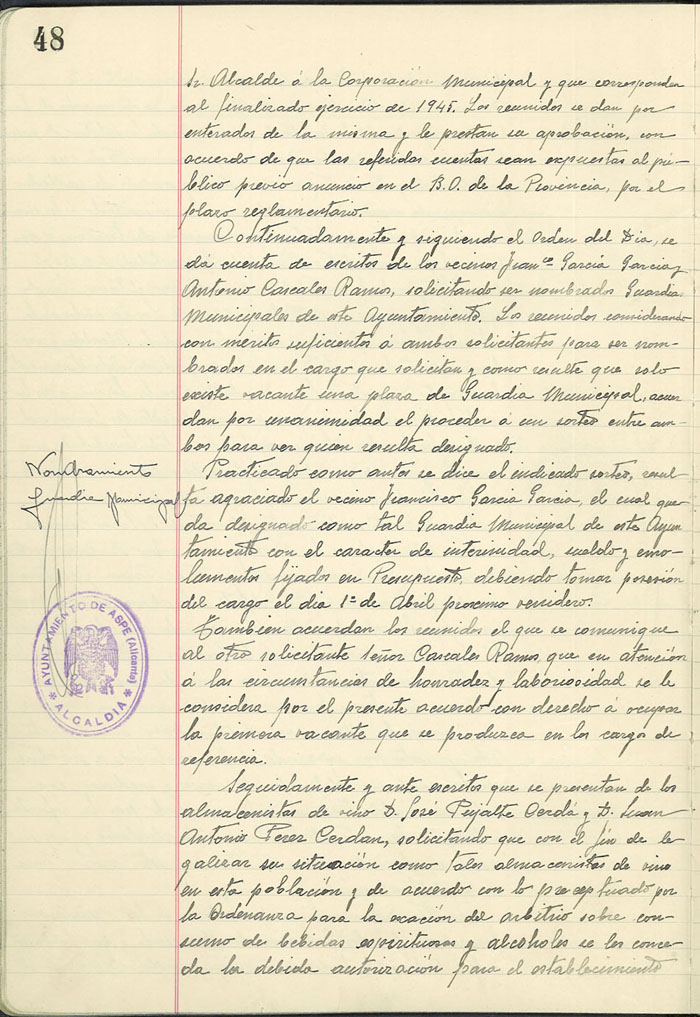 48
Sr. Alcalde á la Corporación Municipal y que corresponden
al finalizado ejercicio de 1945. Los reunidos se dan por
enterados de la misma y le prestan su aprobación, con
acuerdo de que las referidas cuentas sean expuestas al pú-
blico previo anuncio en el B.O. de la Provincia, por el
plazo reglamentario.
Continuadamente y siguiendo el Orden del Dia, se
da cuenta de escritos de los vecinos Franco García Garcia y
Antonio Cascales Ramos, solicitando ser nombrados Guardia
Municipales de este Ayuntamiento. Los reunidos considerando
con meritos suficientes á ambos solicitantes para ser nom-
brados en el cargo que solicitan y como resulte que solo
existe vacante una plaza de Guardia Municipal, acuer
dan por unanimidad el proceder á un sorteo entre am-
bos para ver quien resulta designado.
Nombramiento
Guardia Municipal
Practicado como antes se dice el indicado sorteo, resul-
ta agraciado el vecino Francisco García Garcia, el cual que-
da designado como tal Guardia Municipal de este Ayun-
tamiento con el caracter de interinidad, sueldo y emo-
lumentos fijados en Presupuesto, debiendo tomar posesión
del cargo el dia 1º de Abril proximo venidero.
Tambien acuerdan los reunidos el que se comunique
al otro solicitante Señor Cascales Ramos que en atención
á las circunstancias de honradez y laboriosidad se le
considera por el presente acuerdo con derecho á ocupar
la primera vacante que se produzca en los cargos de
referencia.
AYUNTAMIENTO DE ASPE (Alicante)
* ALCALDIA *
Seguidamente y ante escritos que se presentan de los
almacenistas de vino D. José Pujalte Cerdá y D. Juan
Antonio Perez Cerdan, solicitando que con el fin de le-
galizar su situación como tales almacenistas de vino
en esta población y de acuerdo con lo preceptuado por
la Ordenanza para la exación del arbitrio sobre con-
sumo de bebidas espirituosas y alcoholes se les conce-
da la debida autorización para el establecimiento